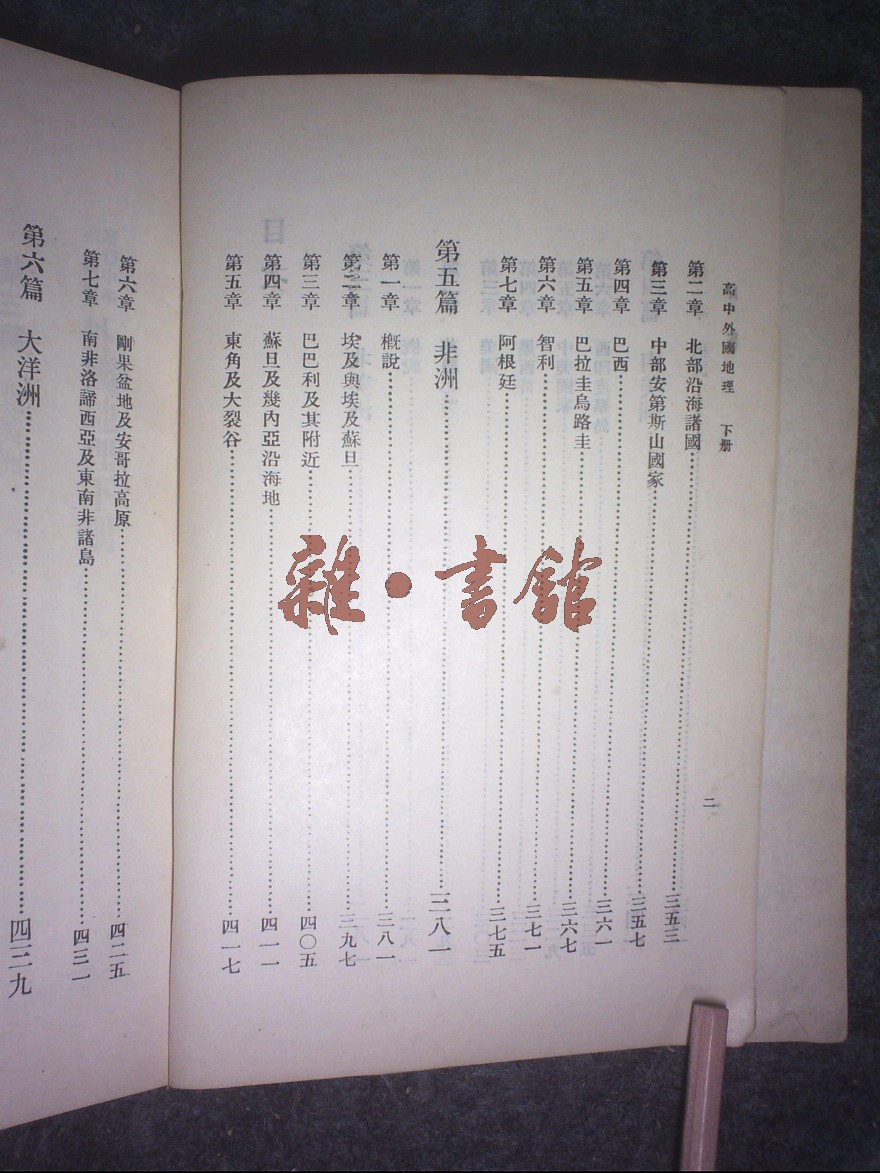 高中外國地理 下册
二
第二章 北部沿海諸國 三五三
第三章 中部安第斯山國家 三五七
第四章 巴西 三六一
第五章 巴拉圭烏路圭 三六七
第六章 智利 三七一
第七章 阿根廷 三七五
第五篇 非洲 三八一
第一章 概說 三八一
第二章 埃及與埃及蘇旦 三九七
第三章 巴巴利及其附近 四〇五
第四章 蘇旦及幾內亞沿海地 四一一
第五章 東角及大裂谷 四一七
第六章 剛果盆地及安哥拉高原 四二五
第七章 南非洛諦西亞及東南非諸島 四三一
第六篇 大洋洲 四三九
雜·書館